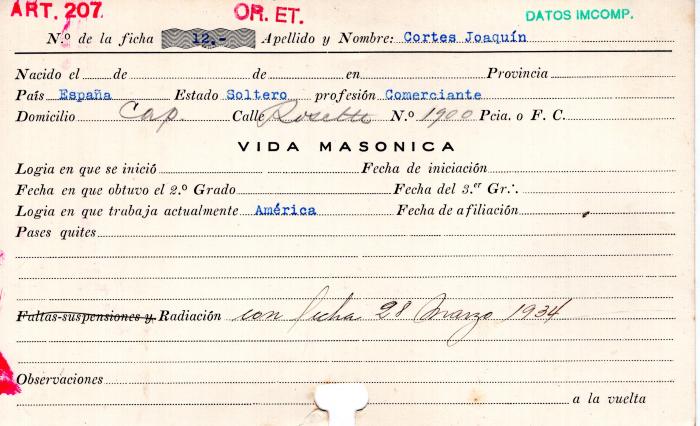 ART. 207. OR. ET. DATOS IMCOMP.
N.º de la ficha 12.- Apellido y Nombre: Cortes Joaquín
Nacido el de de en Provincia
País España Estado Soltero profesión Comerciante
Domicilio Cap. Calle Rosetti N.º 1900 Pcia. o F. C.
VIDA MASONICA
Logia en que se inició Fecha de iniciación
Fecha en que obtuvo el 2.º Grado Fecha del 3.er Gr∴
Logia en que trabaja actualmente América Fecha de afiliación
Pases quites
Faltas-suspensiones y Radiación con fecha 28 Marzo 1934
Observaciones
a la vuelta